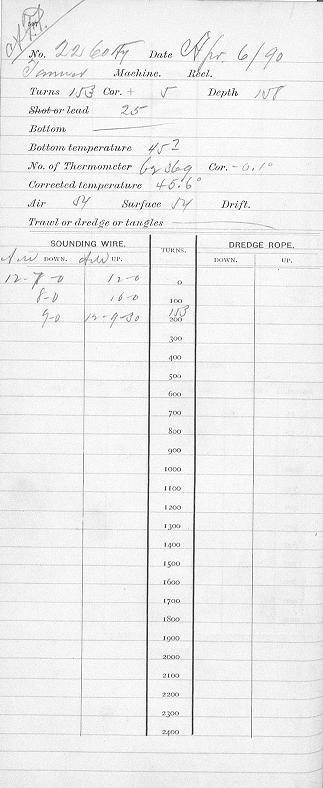 No. 2260 Hy Date Apr 6/90
Tanner Machine. Reel.
Turns 153 Cor. + 5 Depth 158
Shot or lead 25
Bottom
Bottom temperature 45.7
No. of Thermometer 62369 Cor. - 0.1°
Corrected temperature 45.6°
Air 54 Surface 54 Drift.
Trawl or dredge or tangles
SOUNDING WIRE. TURNS. DREDGE ROPE.
DOWN. UP. DOWN. UP.
12-7-0 12-0 0
8-0 10-0 100
9-0 12-9-30 153
200
300
400
500
600
700
800
900
1000
1100
1200
1300
1400
1500
1600
1700
1800
1900
2000
2100
2200
2300
2400